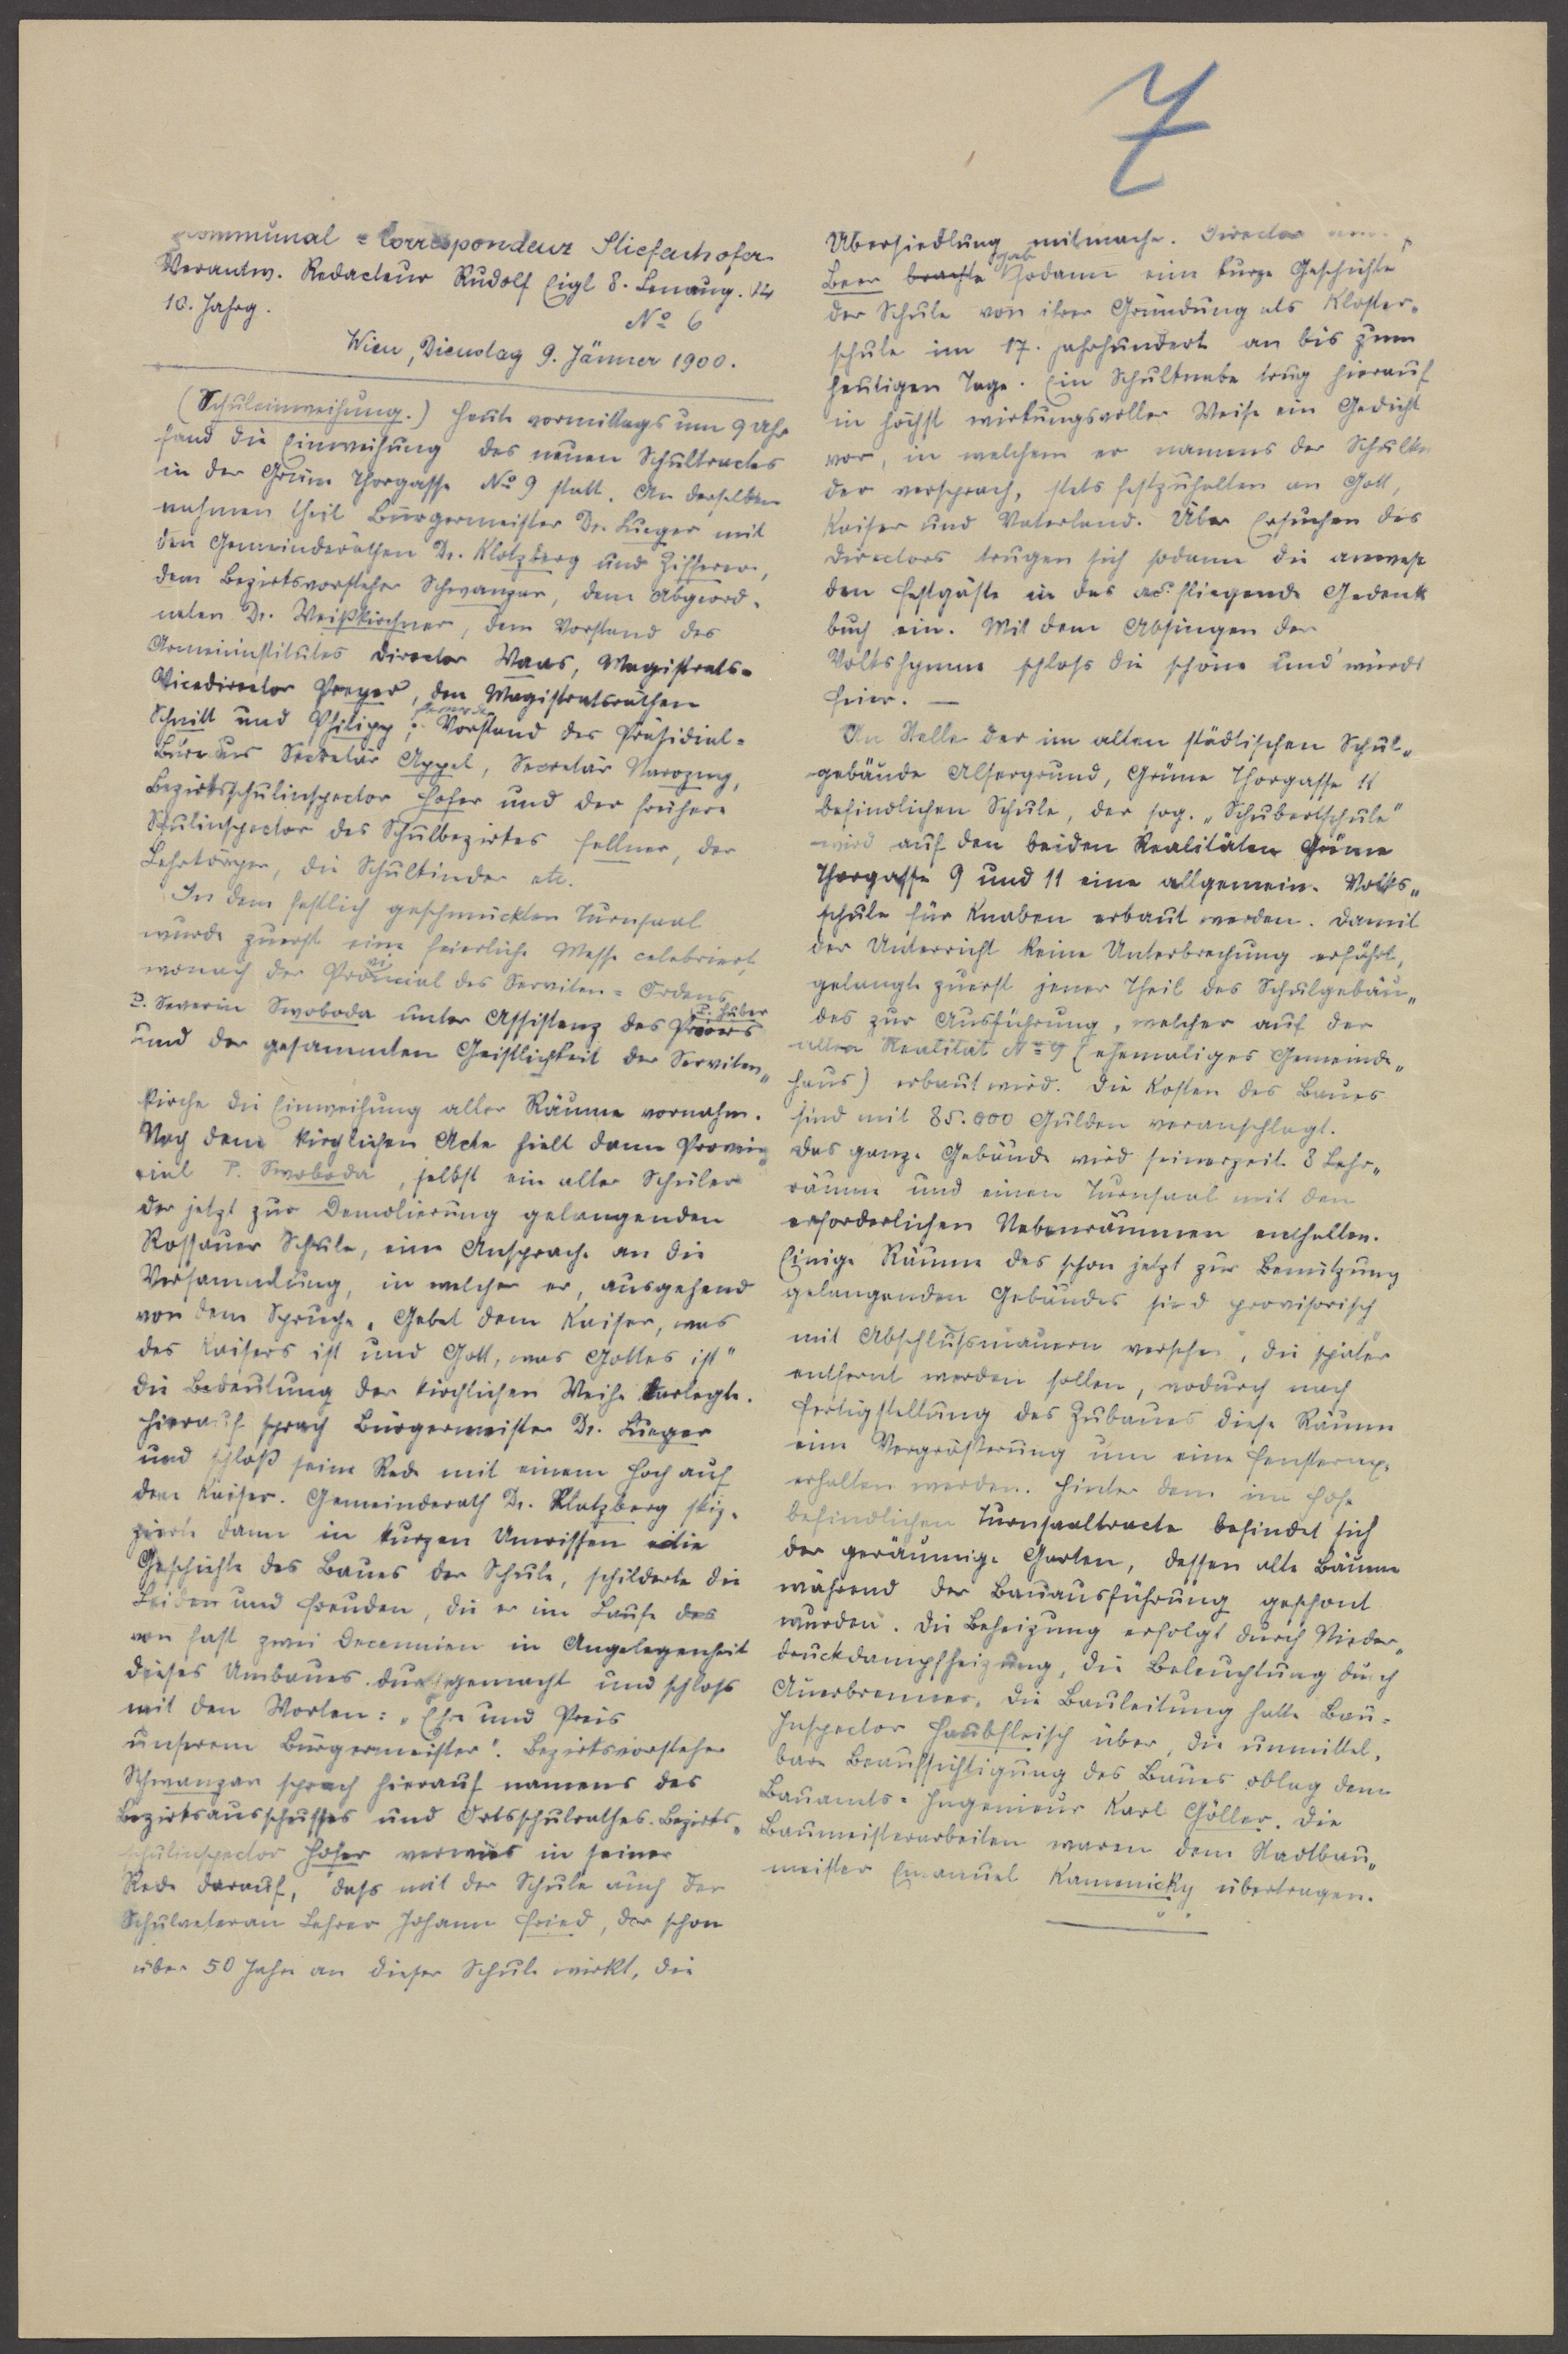 7
Communal-Correspondenz Stiefenhofer
Verantw. Redacteur Rudolf Eigl 8. Lenaug. 14
10. Jahrg.
No 6
Wien, Dienstag 9. Jänner 1900.
(Schuleinweihung.) Heute vormittags um 9 Uhr
fand die Einweihung des neuen Schultractes
in der Grüne Thorgasse No 9 statt. An derselben
nahmen theil Bürgermeister Dr. Lueger mit
den Gemeinderäthen Dr. Klotzberg und Zifferer,
dem Bezirksvorsteher Schwanzar, dem Abgeord-
neten Dr. Weißkirchner, dem Vorstand des
Armeninstitutes Director Waas, Magistrats-
Vicedirector Preyer, den Magistratsräthen
Schnitt und Philipp, ferner der Vorstand des Präsidial-
Bureaus Secretär Appel, Secretär Nawozny,
Bezirksschulinspector Hofer und der frühere
Schulinspector des Schulbezirkes Fellner, der
Lehrkörper, die Schulkinder etc.
In dem festlich geschmückten Turnsaal
wurde zuerst eine feierliche Messe celebriert,
wonach der Provincial des Serviten-Ordens
P. Severin Swoboda unter Assistenz des Priors P. Huber
und der gesammten Geistlichkeit der Serviten„
kirche die Einweihung aller Räume vornahm.
Nach dem kirchlichen Acte hielt dann Provin„
cial P. Swoboda, selbst ein alter Schüler
der jetzt zur Demolierung gelangenden
Rossauer Schule, eine Ansprache an die
Versammlung, in welcher er, ausgehend
von dem Spruche „Gebet dem Kaiser, was
des Kaisers ist und Gott, was Gottes ist"
die Bedeutung der kirchlichen Weihe darlegte.
Hierauf sprach Bürgermeister Dr. Lueger
und schloß seine Rede mit einem Hoch auf
den Kaiser. Gemeinderath Dr. Klotzberg skiz-
zierte dann in kurzen Umrissen die
Geschichte des Baues der Schule, schilderte die
Leiden und Freuden, die er im Laufe des
von fast zwei Decennien in Angelegenheit
dieses Umbaues durchgemacht und schloss
mit den Worten: „Ehre und Preis
unserem Bürgermeister". Bezirksvorsteher
Schwanzar sprach hierauf namens des
Bezirksausschusses und Ortsschulrathes. Bezirks„
schulinspector Hofer verwies in seiner
Rede darauf, dass mit der Schule auch der
Schulveteran Lehrer Johann Fried, der schon
über 50 Jahre an dieser Schule wirkt, die
Übersiedlung mitmache. Director
Beer brachte gab sodann eine kurze Geschichte
der Schule von ihrer Gründung als Kloster-
schule im 17. Jahrhundert an bis zum
heutigen Tage. Ein Schulknabe trug hierauf
in höchst wirkungsvoller Weise ein Gedicht
vor, in welchem er namens der Schulkin
der versprach, stets festzuhalten an Gott,
Kaiser und Vaterland. Über Ersuchen des
Directors trugen sich sodann die anwese
den Festgäste in das aufliegende Gedenk
buch ein. Mit dem Absingen der
Volkshymne schloss die schöne und würdi
Feier. —
An Stelle der im alten städtischen Schul„
gebäude Alsergrund, Grüne Thorgasse 11
befindlichen Schule, der sog. „Schubertschule"
wird auf den beiden Realitäten Grüne
Thorgasse 9 und 11 eine allgemeine Volks„
schule für Knaben erbaut werden. Damit
der Unterricht keine Unterbrechung erfährt,
gelangte zuerst jener Theil des Schulgebäu„
des zur Ausführung, welcher auf der
alten Realität No 9 (ehemaliges Gemeinde„
haus) erbaut wird. Die Kosten des Baues
sind mit 85.000 Gulden veranschlagt.
Das ganze Gebäude wird seinerzeit 8 Lehr„
räume und einen Turnsaal mit den
erforderlichen Nebenräumen enthalten.
Einige Räume des schon jetzt zur Benützung
gelangenden Gebäudes sind provisorisch
mit Abschlussmauern versehen, die später
entfernt werden sollen, wodurch nach
Fertigstellung des Zubaues diese Räume
eine Vergrößerung um eine Fensteraxe
erhalten werden. Hinter dem im Hofe
befindlichen Turnsaaltracte befindet sich
der geräumige Garten, dessen alte Bäume
während der Bauausführung geschont
wurden. Die Beheizung erfolgt durch Nieder„
druckdampfheizung, die Beleuchtung durch
Auerbrenner. Die Bauleitung hatte Bau-
Inspector Haubfleisch über, die unmittel-
bare Beaufsichtigung des Baues oblag dem
Bauamts-Ingenieur Karl Göller. Die
Baumeisterarbeiten waren dem Stadtbau„
meister Emanuel Kamenicky übertragen.